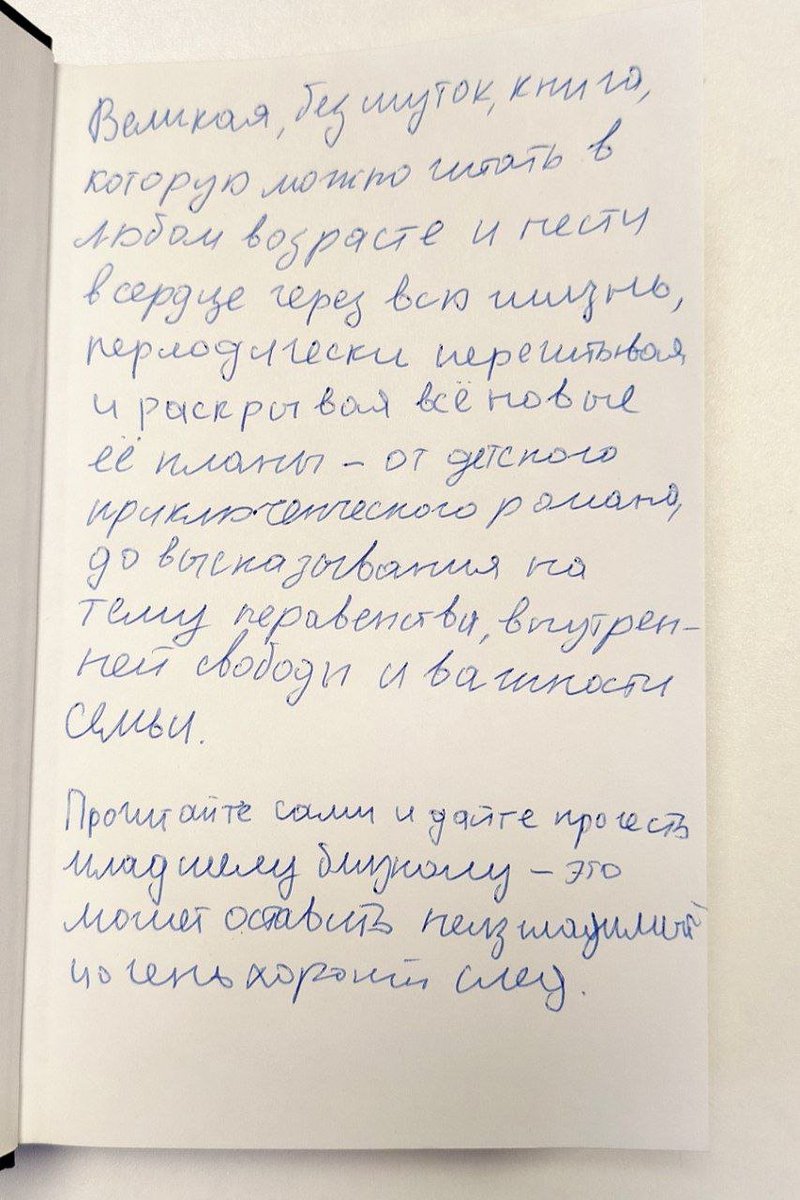 Великая, без шуток, книга,
которую можно читать в
любом возрасте и нести
в сердце через всю жизнь,
периодически перечитывая
и раскрывая всё новые
её планы – от детского
приключенческого романа,
до высказывания на
тему неравенства, внутрен-
ней свободы и важности
семьи.
Прочитайте сами и дайте прочесть
младшему близкому – это
может оставить неизгладимый
и очень хороший след.